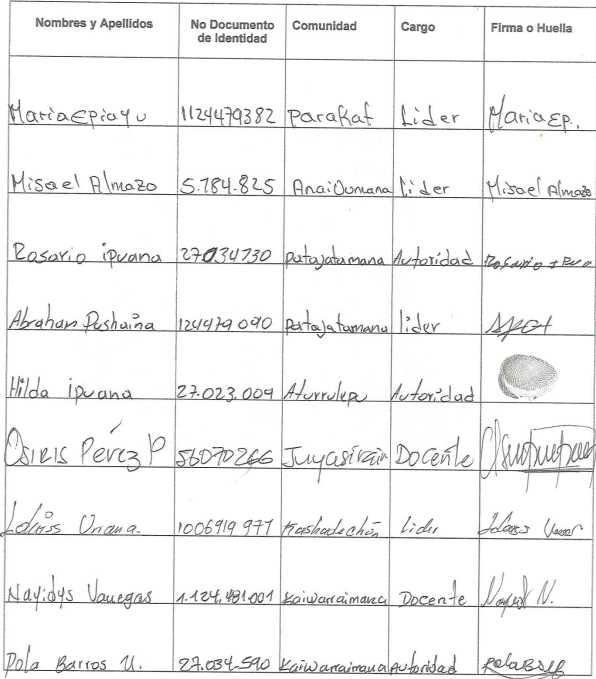 Nombres y Apellidos | No Documento de Identidad | Comunidad | Cargo | Firma o Huella
Maria Epiayu | 1124479382 | Parakat | Lider | Maria Ep.,
Misael Almazo | 5.784.825 | Lider | Misael Almazo
Rosario ipuana | 27034730 | patajatamana | Autoridad | Rosario
Abraham Pushaina | 124479090 | patajatamana | lider
Hilda ipuana | 27.023.009 | Aturrulepu | Autoridad
Osiris Pérez P | 56070266 | Juyasirain | Docente
Uriana. | 1006919977 | Lider
Nayidys Vanegas | 1.124.481.001 | Kaiwarraimana | Docente | N.
Pola Barros U. | 27.034.590 | Kaiwarraimana | Autoridad